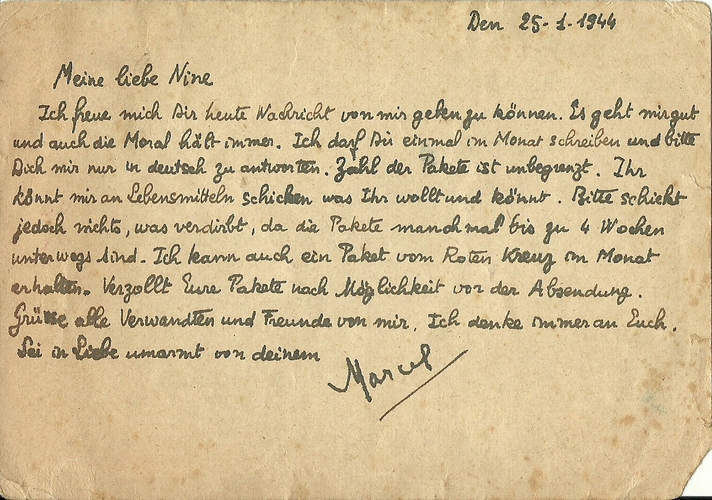 Den 25-1-1944
Meine liebe Nine
Ich freue mich Dir heute Nachricht von mir geben zu können. Es geht mir gut
und auch die Moral hält immer. Ich darf Dir einmal im Monat schreiben und bitte
Dich mir nur in deutsch zu antworten. Zahl der Pakete ist unbegrenzt. Ihr
könnt mir an Lebensmitteln schicken was Ihr wollt und könnt. Bitte schickt
jedoch nichts, was verdirbt, da die Pakete manchmal bis zu 4 Wochen
unterwegs sind. Ich kann auch ein Paket vom Roten Kreuz im Monat
erhalten. Verzollt Eure Pakete nach Möglichkeit vor der Absendung.
Grüsse alle Verwandten und Freunde von mir. Ich denke immer an Euch.
Sei in Liebe umarmt von deinem
Marcel